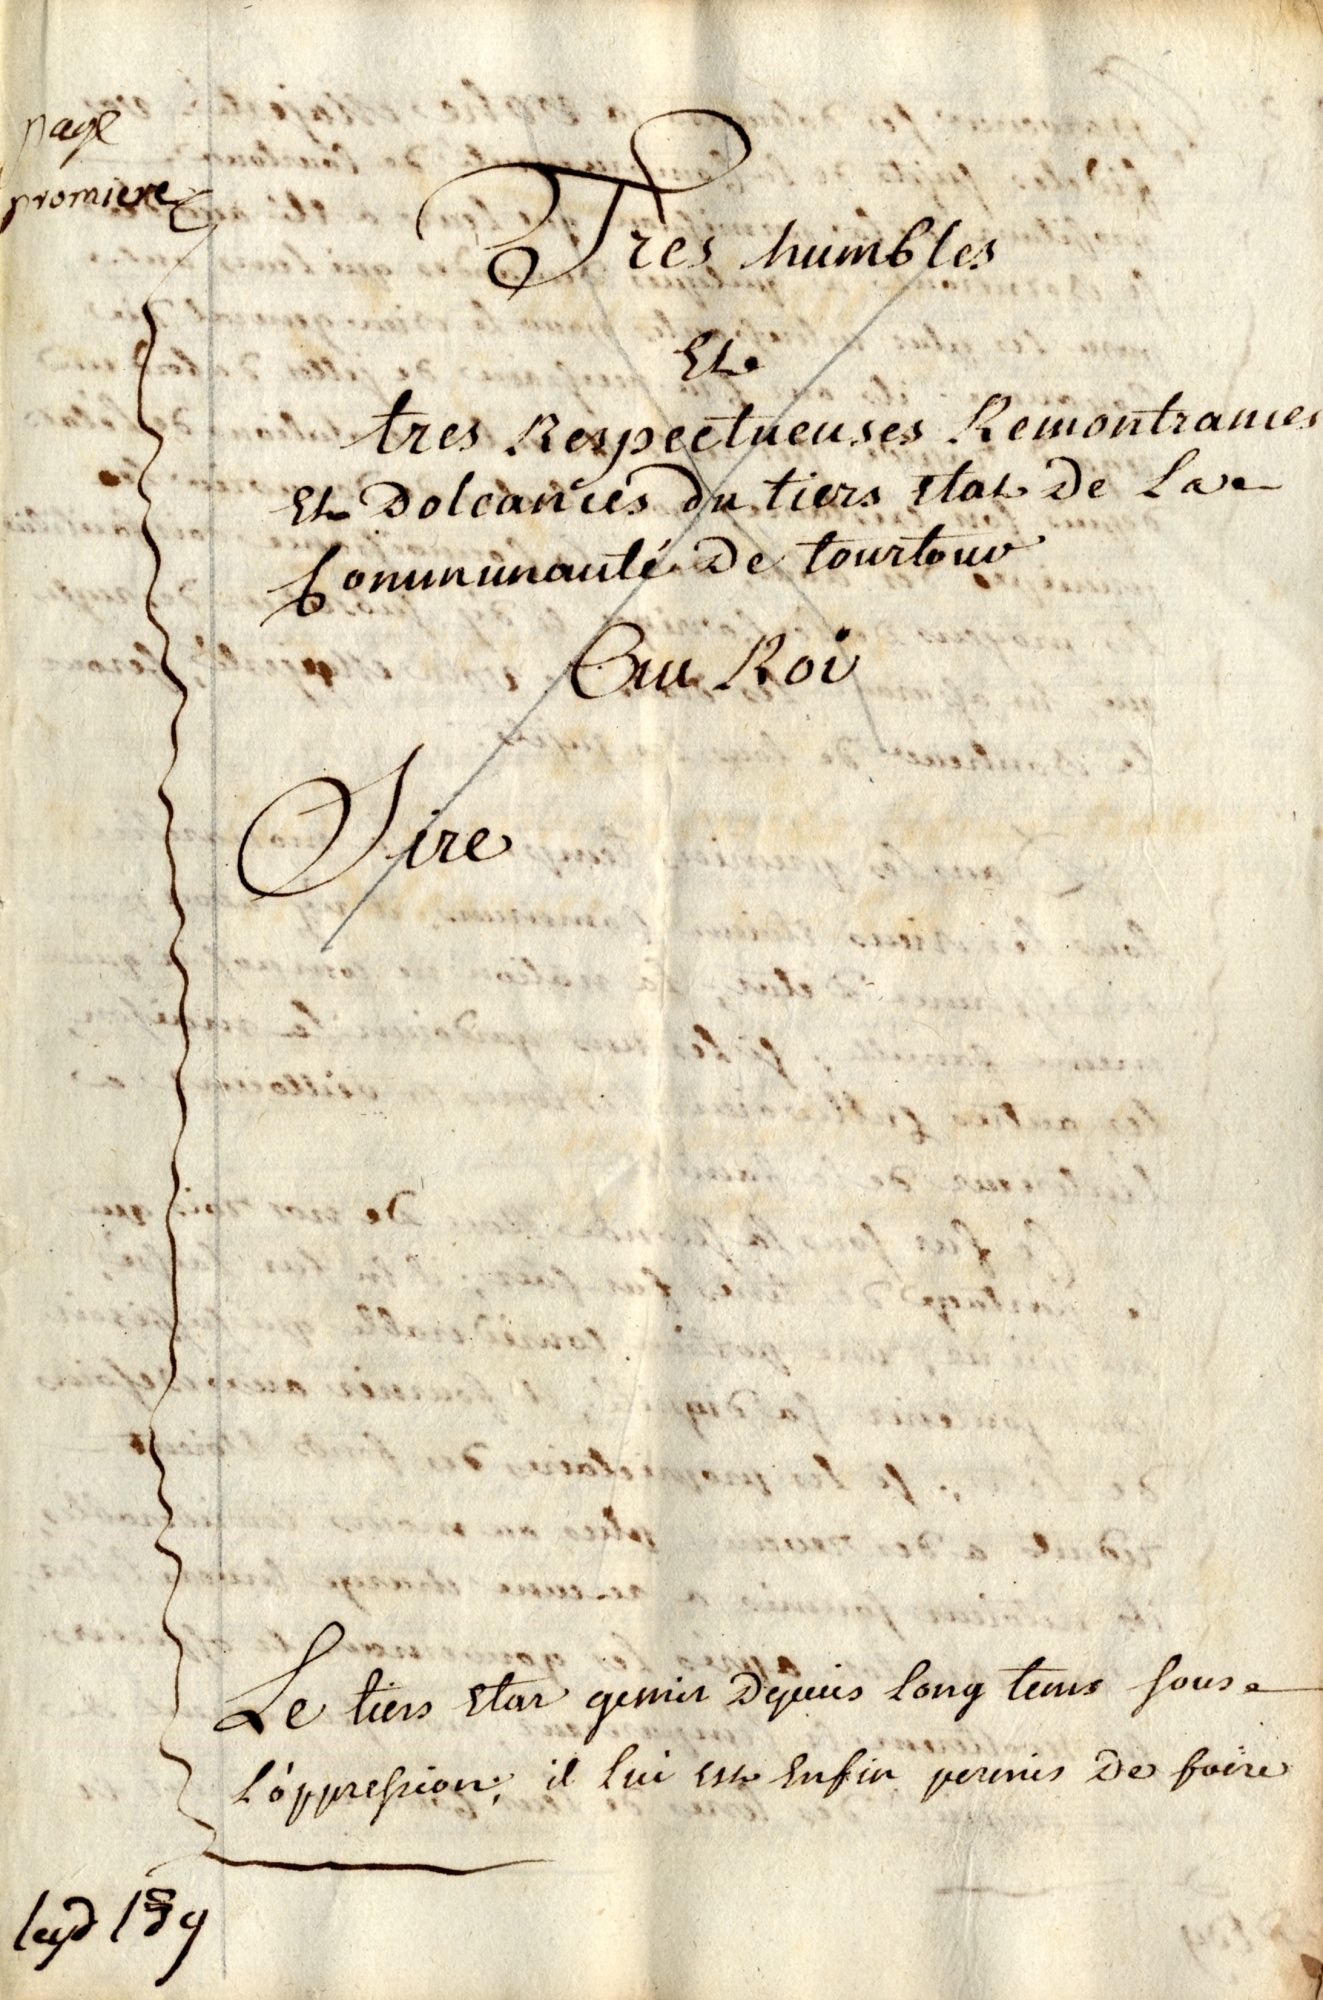 page
premiere
Tres humbles
Et
tres Respectueuses Remontrances
Et Doleances du tiers Etat De La
Communauté De tourtour
Au Roi
Sire
Le tiers Etat gemit Depuis long tems sous
L'oppression, il lui est Enfin permis De faire